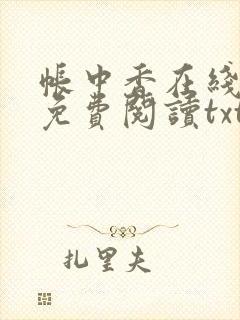 帳中香在綫
免費閱讀txt
扎里夫